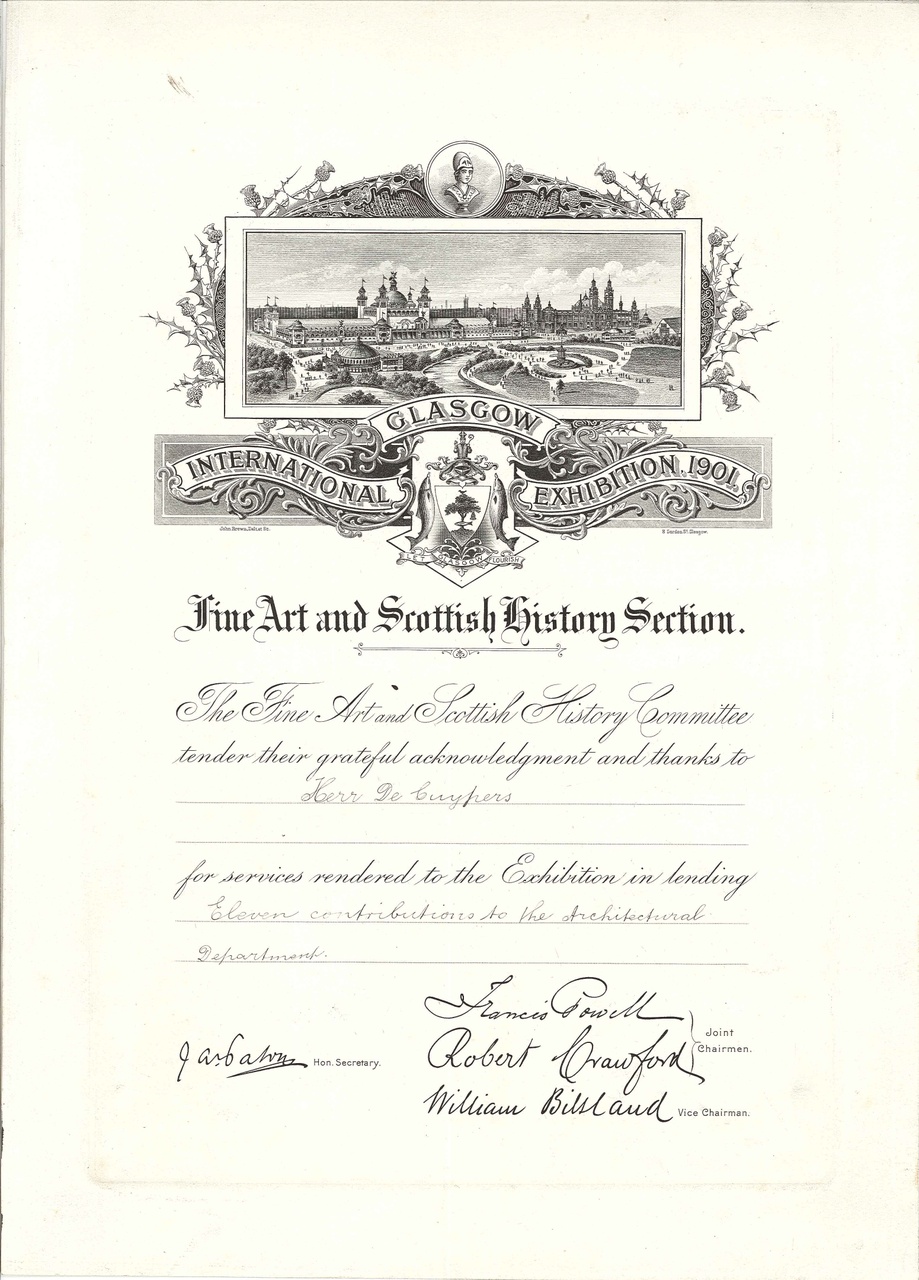 GLASGOW
INTERNATIONAL EXHIBITION. 1901.
LET GLASGOW FLOURISH
Fine Art and Scottish History Section.
The Fine Art and Scottish History Committee
tender their grateful acknowledgment and thanks to
Herr De Cuypers
for services rendered to the Exhibition in lending
Eleven contributions to the Architectural
Department.
Francis Powell
Robert Crawford
Joint
Chairmen.
Hon. Secretary.
William Bilsland Vice Chairman.